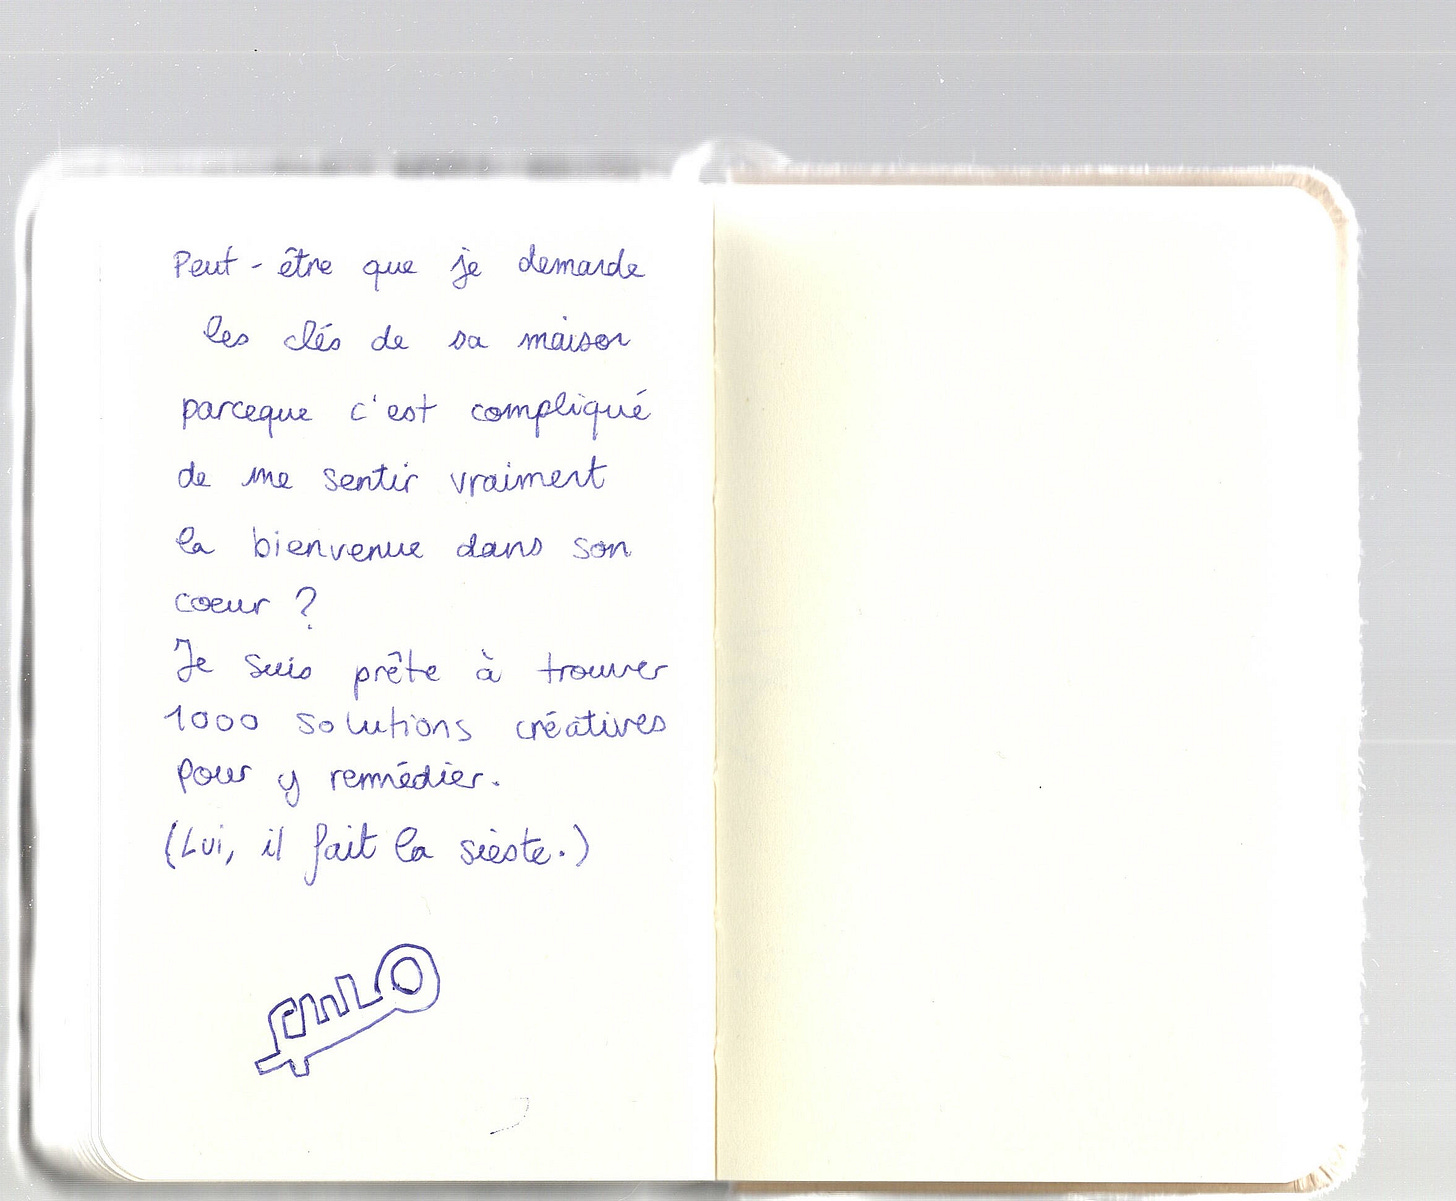 Peut-être que je demande
les clés de sa maison
parceque c'est compliqué
de me sentir vraiment
la bienvenue dans son
coeur ?
Je suis prête à trouver
1000 solutions créatives
pour y remédier.
(Lui, il fait la sieste.)